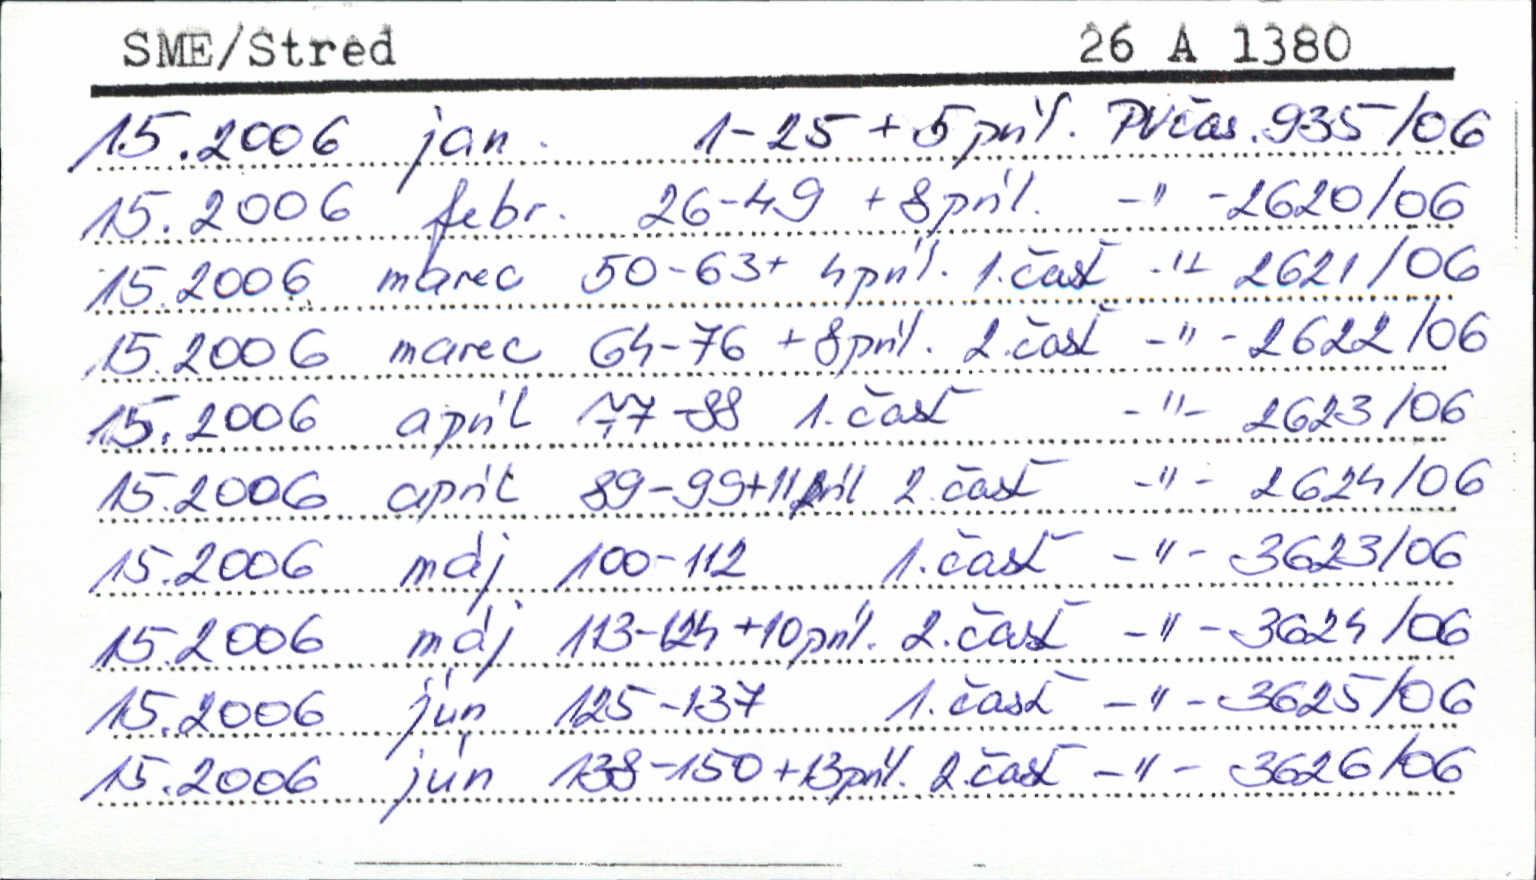 SME/Stred 26 A 1380
15.2006 jan. 1-25 + 5 príl. PVčas. 935/06
15.2006 febr. 26-49 + 8 príl. -"- 2620/06
15.2006 marec 50-63 + 4 príl. 1. časť -"- 2621/06
15.2006 marec 64-76 + 8 príl. 2. časť -"- 2622/06
15.2006 apríl 77-88 1. časť -"- 2623/06
15.2006 apríl 89-99+11 príl 2. časť -"- 2624/06
15.2006 máj 100-112 1. časť -"- 3623/06
15.2006 máj 113-124 +10 príl. 2. časť -"- 3624/06
15.2006 jún 125-137 1. časť -"- 3625/06
15.2006 jún 138-150 +13 príl. 2. časť -"- 3626/06